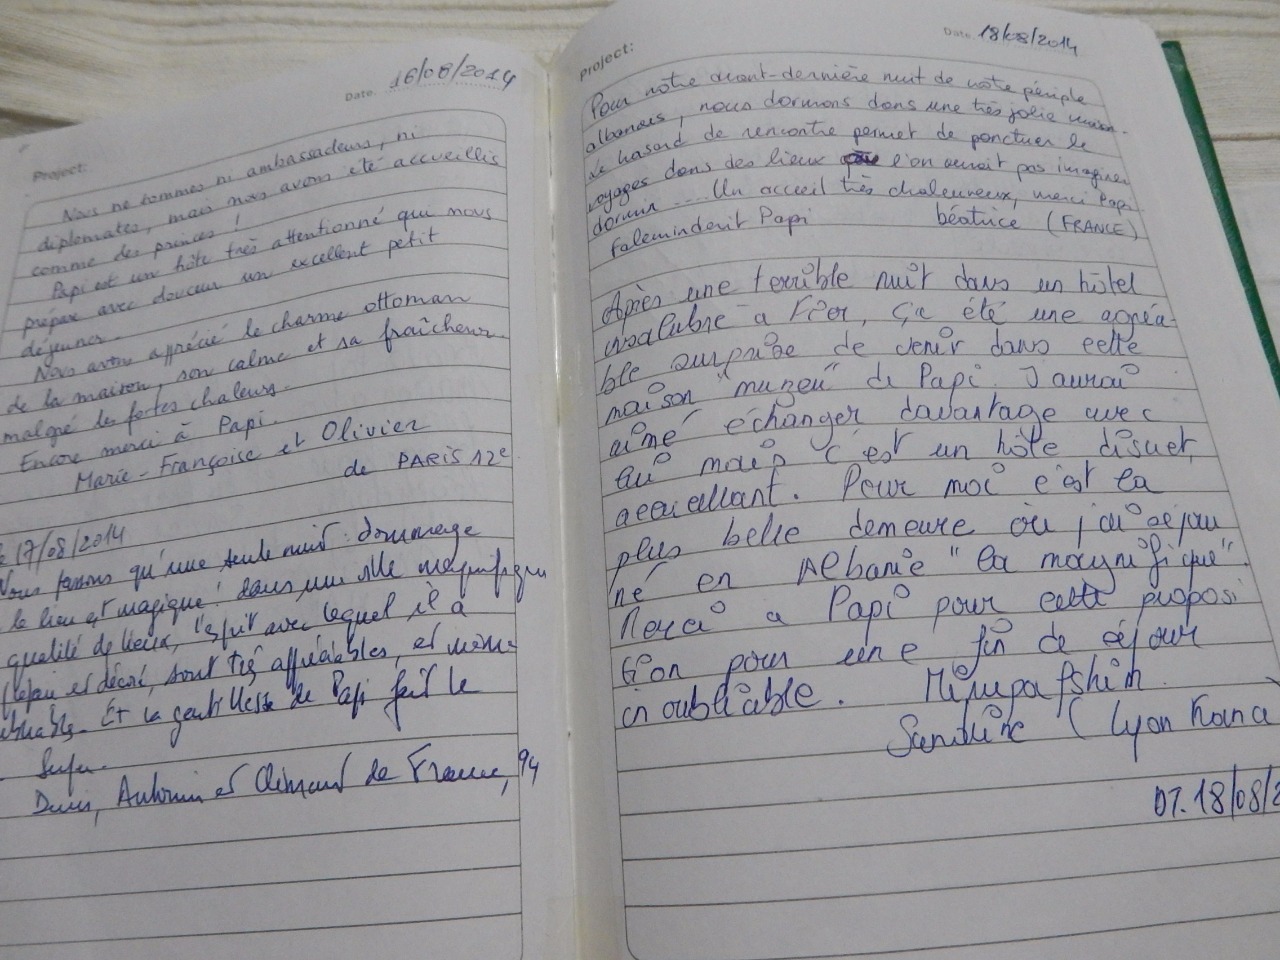 Date. 16/08/2014
Project:
Nous ne sommes ni ambassadeurs, ni
diplomates, mais nous avons été accueillis
comme des princes !
Papi est un hôte très attentionné qui nous
prépare avec douceur un excellent petit
déjeuner.
Nous avons apprécié le charme ottoman
de la maison, son calme et sa fraîcheur
malgré les fortes chaleurs.
Encore merci à Papi.
Marie-Françoise et Olivier
de PARIS 12e
17/08/2014
qu'une seule nuit : dommage
le lieu est magique ! dans une ville magnifique
qualité de lieux, l'esprit avec lequel il a
et décoré, sont très appréciables, et
Et la gentillesse de Papi fait le
et Clément de France, 94
Date. 18/08/2014
Project:
Pour notre avant-dernière nuit de notre périple
albanais, nous dormons dans une très jolie maison.
Le hasard de rencontre permet de ponctuer le
voyages dans des lieux que l'on aurait pas imaginer
dormir .... Un accueil très chaleureux, merci Papi
Faleminderit Papi béatrice (FRANCE)
Après une terrible nuit dans un hôtel
insalubre a Fier, ça été une agréa-
ble surprise de venir dans cette
maison "muzeu" de Papi. J'aurai
aimé échanger davantage avec
lui mais c'est un hôte discret,
accueillant. Pour moi c'est la
plus belle demeure où j'ai séjour
né en Albanie "la magnifique".
Merci a Papi pour cette proposi
tion pour une fin de séjour
inoubliable. Mirupafshim
Sandrine (Lyon
DT. 18/08/2